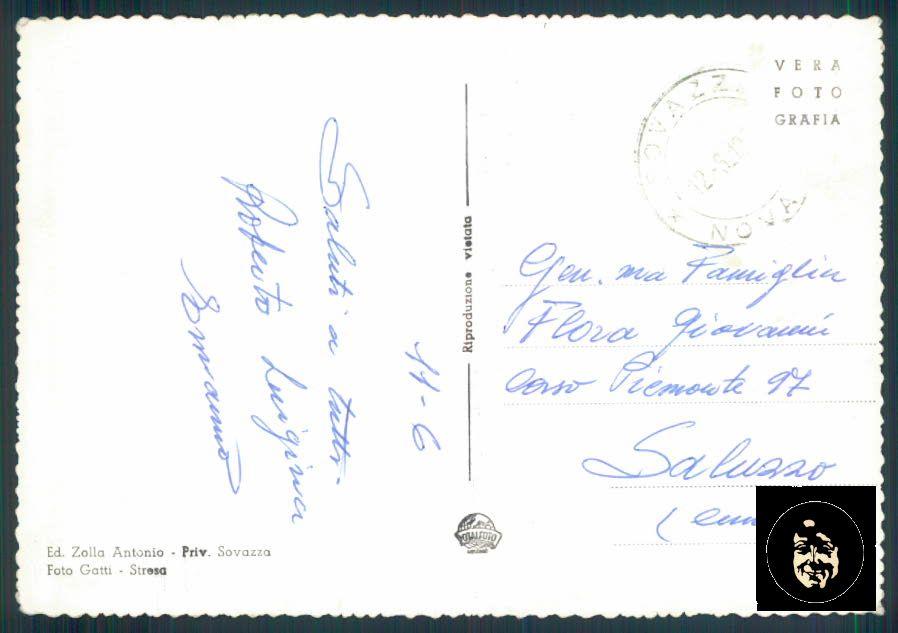 11-6
Saluti a tutti.
Roberto Luigina
Ermanno
Ed. Zolla Antonio - Priv. Sovazza
Foto Gatti - Stresa
Riproduzione vietata
TOTALFOTO
VERA
FOTO
GRAFIA
SOVAZZA
NOVA
Gen. ma Famiglia
Flora Giovanni
Corso Piemonte 97
Saluzzo